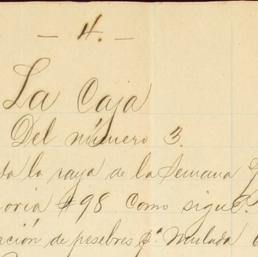 — 4. —
La Caja
Del número 3.
la raya de la Semana
#98 como sigue.
de pesebres pª Mulada